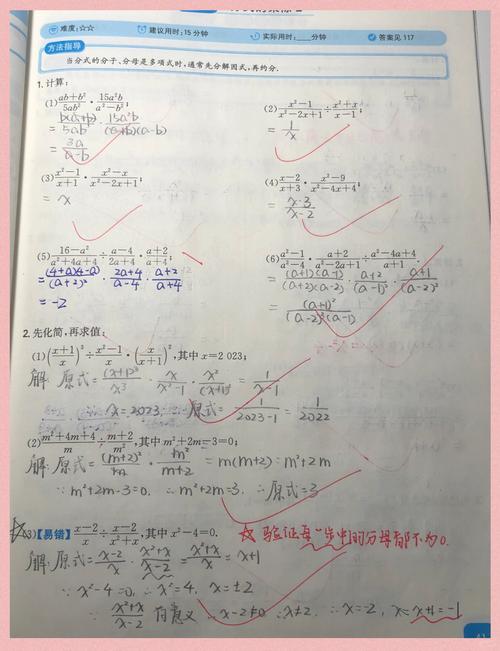 难度:☆☆ 建议用时:15 分钟 实际用时:____分钟 答案见 117
方法指导
当分式的分子、分母是多项式时,通常先分解因式,再约分.
1. 计算:
(1) (ab+b²)/(5ab²) · (15a²b)/(a²-b²);
= b(a+b)/5ab² · 15a²b/(a+b)(a-b)
= 3a/(a-b)
(2) (x²-1)/(x²-2x+1) ÷ (x²+x)/(x-1);
= 1/x
(3) (x²-1)/(x+1) · (x²-x)/(x²-2x+1);
= x
(4) (x-2)/(x+3) · (x²-9)/(x²-4x+4);
= (x-3)/(x-2)
(5) (16-a²)/(a²+4a+4) ÷ (a-4)/(2a+4) · (a+2)/(a+4);
= (4+a)(4-a)/(a+2)² · (2a+4)/(a-4) · (a+2)/(a+4)
= -2
(6) (a²-1)/(a²-4) · (a+2)/(a²-2a+1) ÷ (a²-4a+4)/(a+1).
= (a+1)(a-1)/(a+2)(a-2) · (a+2)/(a-1)² · (a+1)/(a-2)²
= (a+1)²/(a-2)³(a-1)
2. 先化简,再求值:
(1) ((x+1)/x)² ÷ (x²-1)/x · (x/(x+1))²,其中 x=2 023;
解: 原式= · x/(x²-1) · x²/(x+1)² = 1/(x-1)
∵ x=2023 ∴ 原式= 1/(2023-1) = 1/2022
(2) (m²+4m+4)/m ÷ (m+2)/m²,其中 m²+2m-3=0;
解: 原式= (m+2)²/m · m²/(m+2) = m(m+2)= m²+2m
∵ m²+2m-3=0. ∴ m²+2m=3. ∴ 原式=3
(3)【易错】(x-2)/x ÷ (x-2)/(x²+x),其中 x²-4=0.
☆ 验证每一步中的分母都不为0.
解: 原式= (x-2)/x · (x²+x)/(x-2) = (x²+x)/x = x+1
∵ x²-4=0 ∴ x²=4. x=±2
∵ (x²+x)/(x-2) 有意义 ∴ x-2≠0 ∴ x≠2. ∴ x=-2, x+1=-1